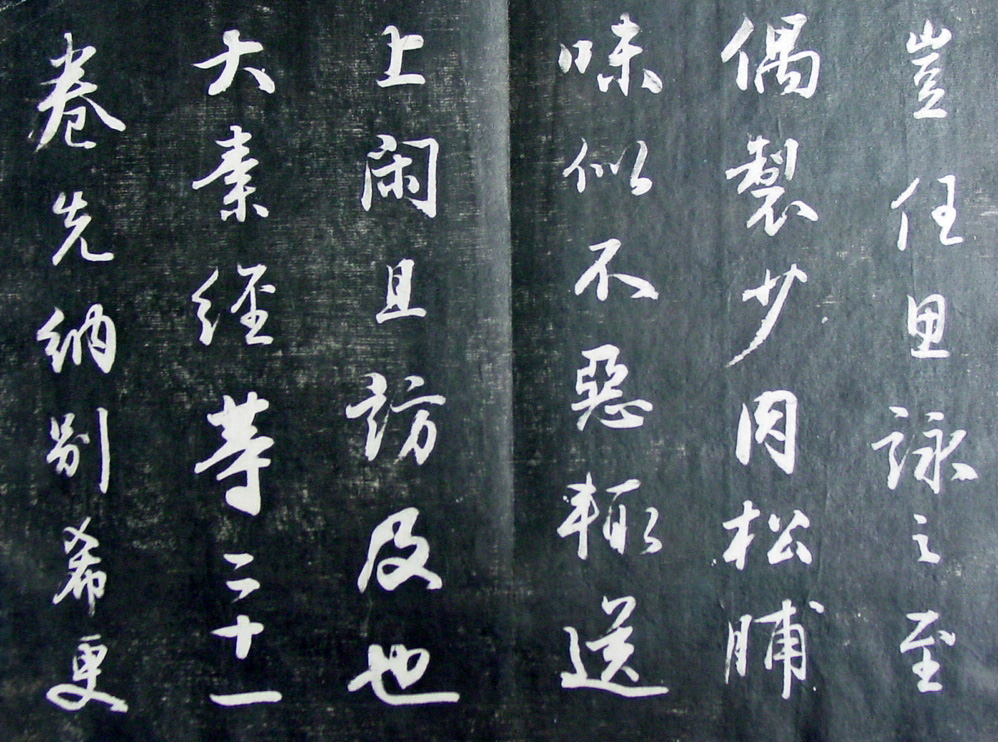 豈任思詠之至
偶製少肉松脯
味似不惡輒送
上闲且訪及也
大秦經等二十一
卷先納別希更